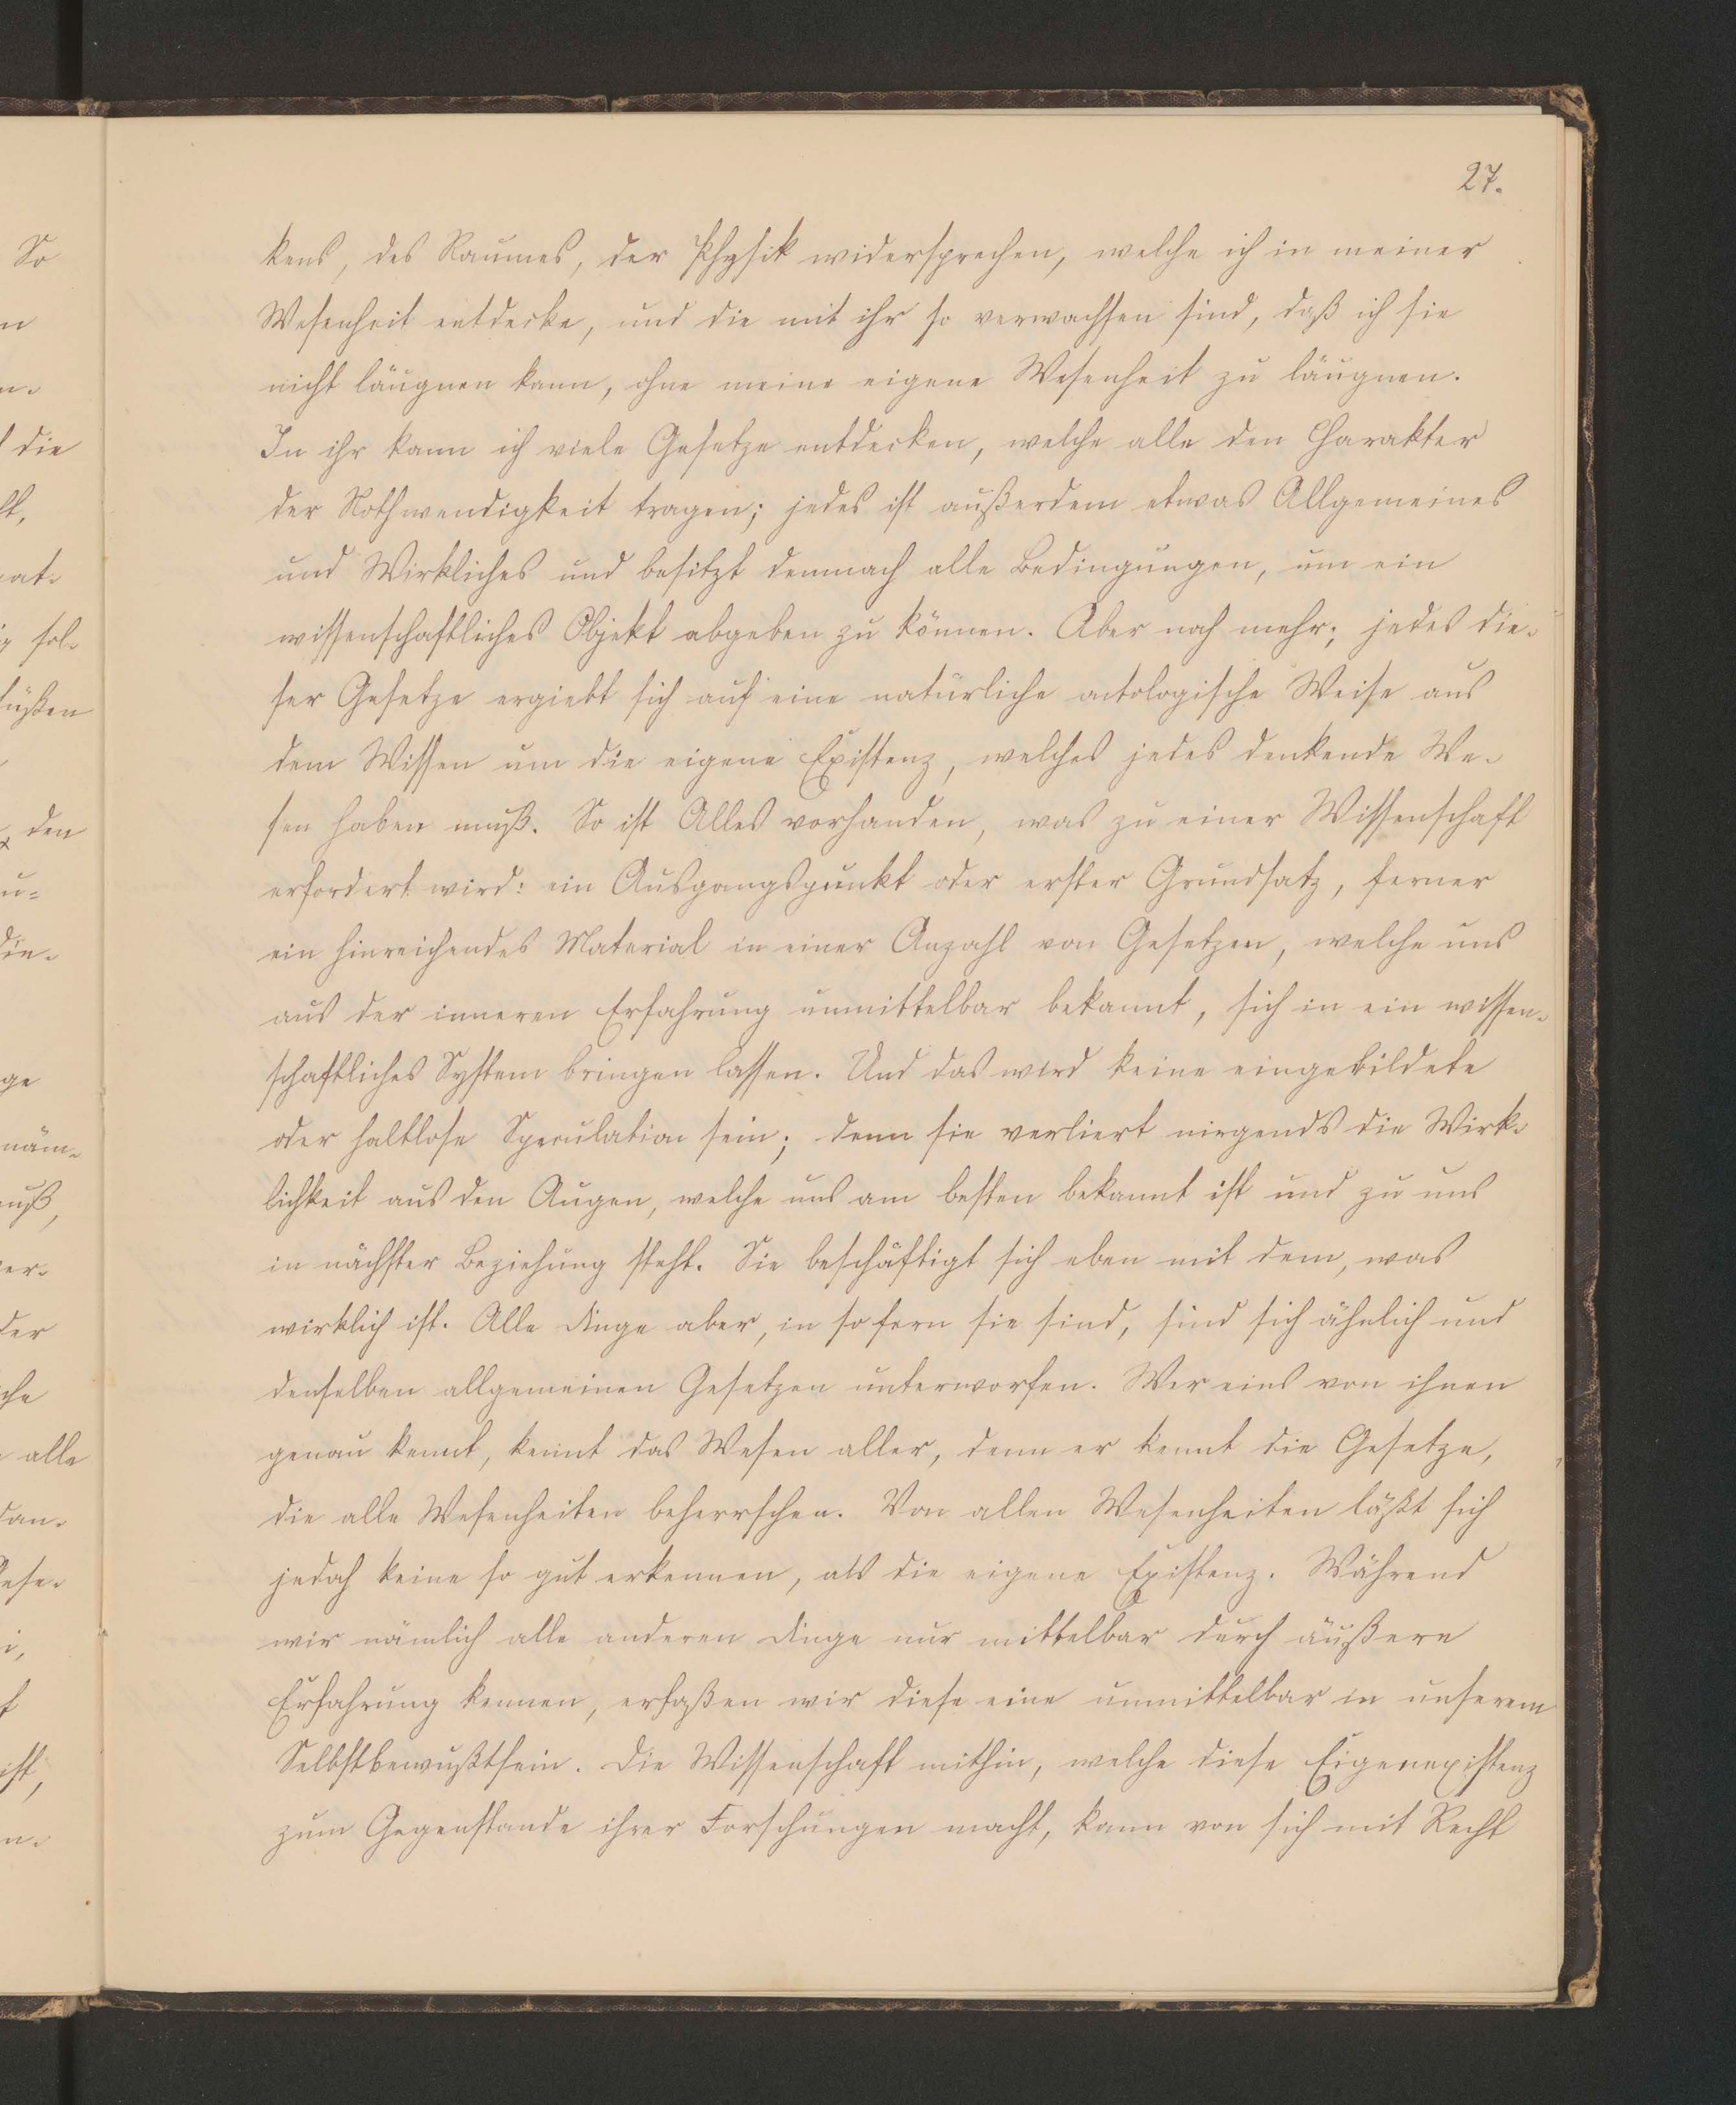 27.
kens, des Raumes, der Physik widersprechen, welche ich in meiner
Wesenheit entdecke, und die mit ihr so verwachsen sind, daß ich sie
nicht läugnen kann, ohne meine eigene Wesenheit zu läugnen.
In ihr kann ich viele Gesetze entdecken, welche alle den Charakter
der Nothwendigkeit tragen; jedes ist außerdem etwas Allgemeines
und Wirkliches und besitzt demnach alle Bedingungen, um ein
wissenschaftliches Objekt abgeben zu können. Aber noch mehr; jedes die-
ser Gesetze ergiebt sich auf eine natürliche ontologische Weise aus
dem Wissen um die eigene Existenz, welches jedes denkende We-
sen haben muß. So ist Alles vorhanden, was zu einer Wissenschaft
erfordert wird: ein Ausgangspunkt oder erster Grundsatz, ferner
ein hinreichendes Material in einer Anzahl von Gesetzen, welche uns
aus der inneren Erfahrung unmittelbar bekannt, sich in ein wissen-
schaftliches System bringen lassen. Und das wird keine eingebildete
oder haltlose Speculation sein; denn sie verliert nirgends die Wirk-
lichkeit aus den Augen, welche uns am besten bekannt ist und zu uns
in nächster Beziehung steht. Sie beschäftigt sich eben mit dem, was
wirklich ist. Alle Dinge aber, in so fern sie sind, sind sich ähnlich und
denselben allgemeinen Gesetzen unterworfen. Wer eins von ihnen
genau kennt, kennt das Wesen aller, denn er kennt die Gesetze,
die alle Wesenheiten beherrschen. Von allen Wesenheiten läßt sich
jedoch keine so gut erkennen, als die eigene Existenz. Während
wir nämlich alle anderen Dinge nur mittelbar durch äußere
Erfahrung kennen, erfaßen wir diese eine unmittelbar in unserem
Selbstbewußtsein. Die Wissenschaft mithin, welche diese Eigenexistenz
zum Gegenstande ihrer Forschungen macht, kann von sich mit Recht